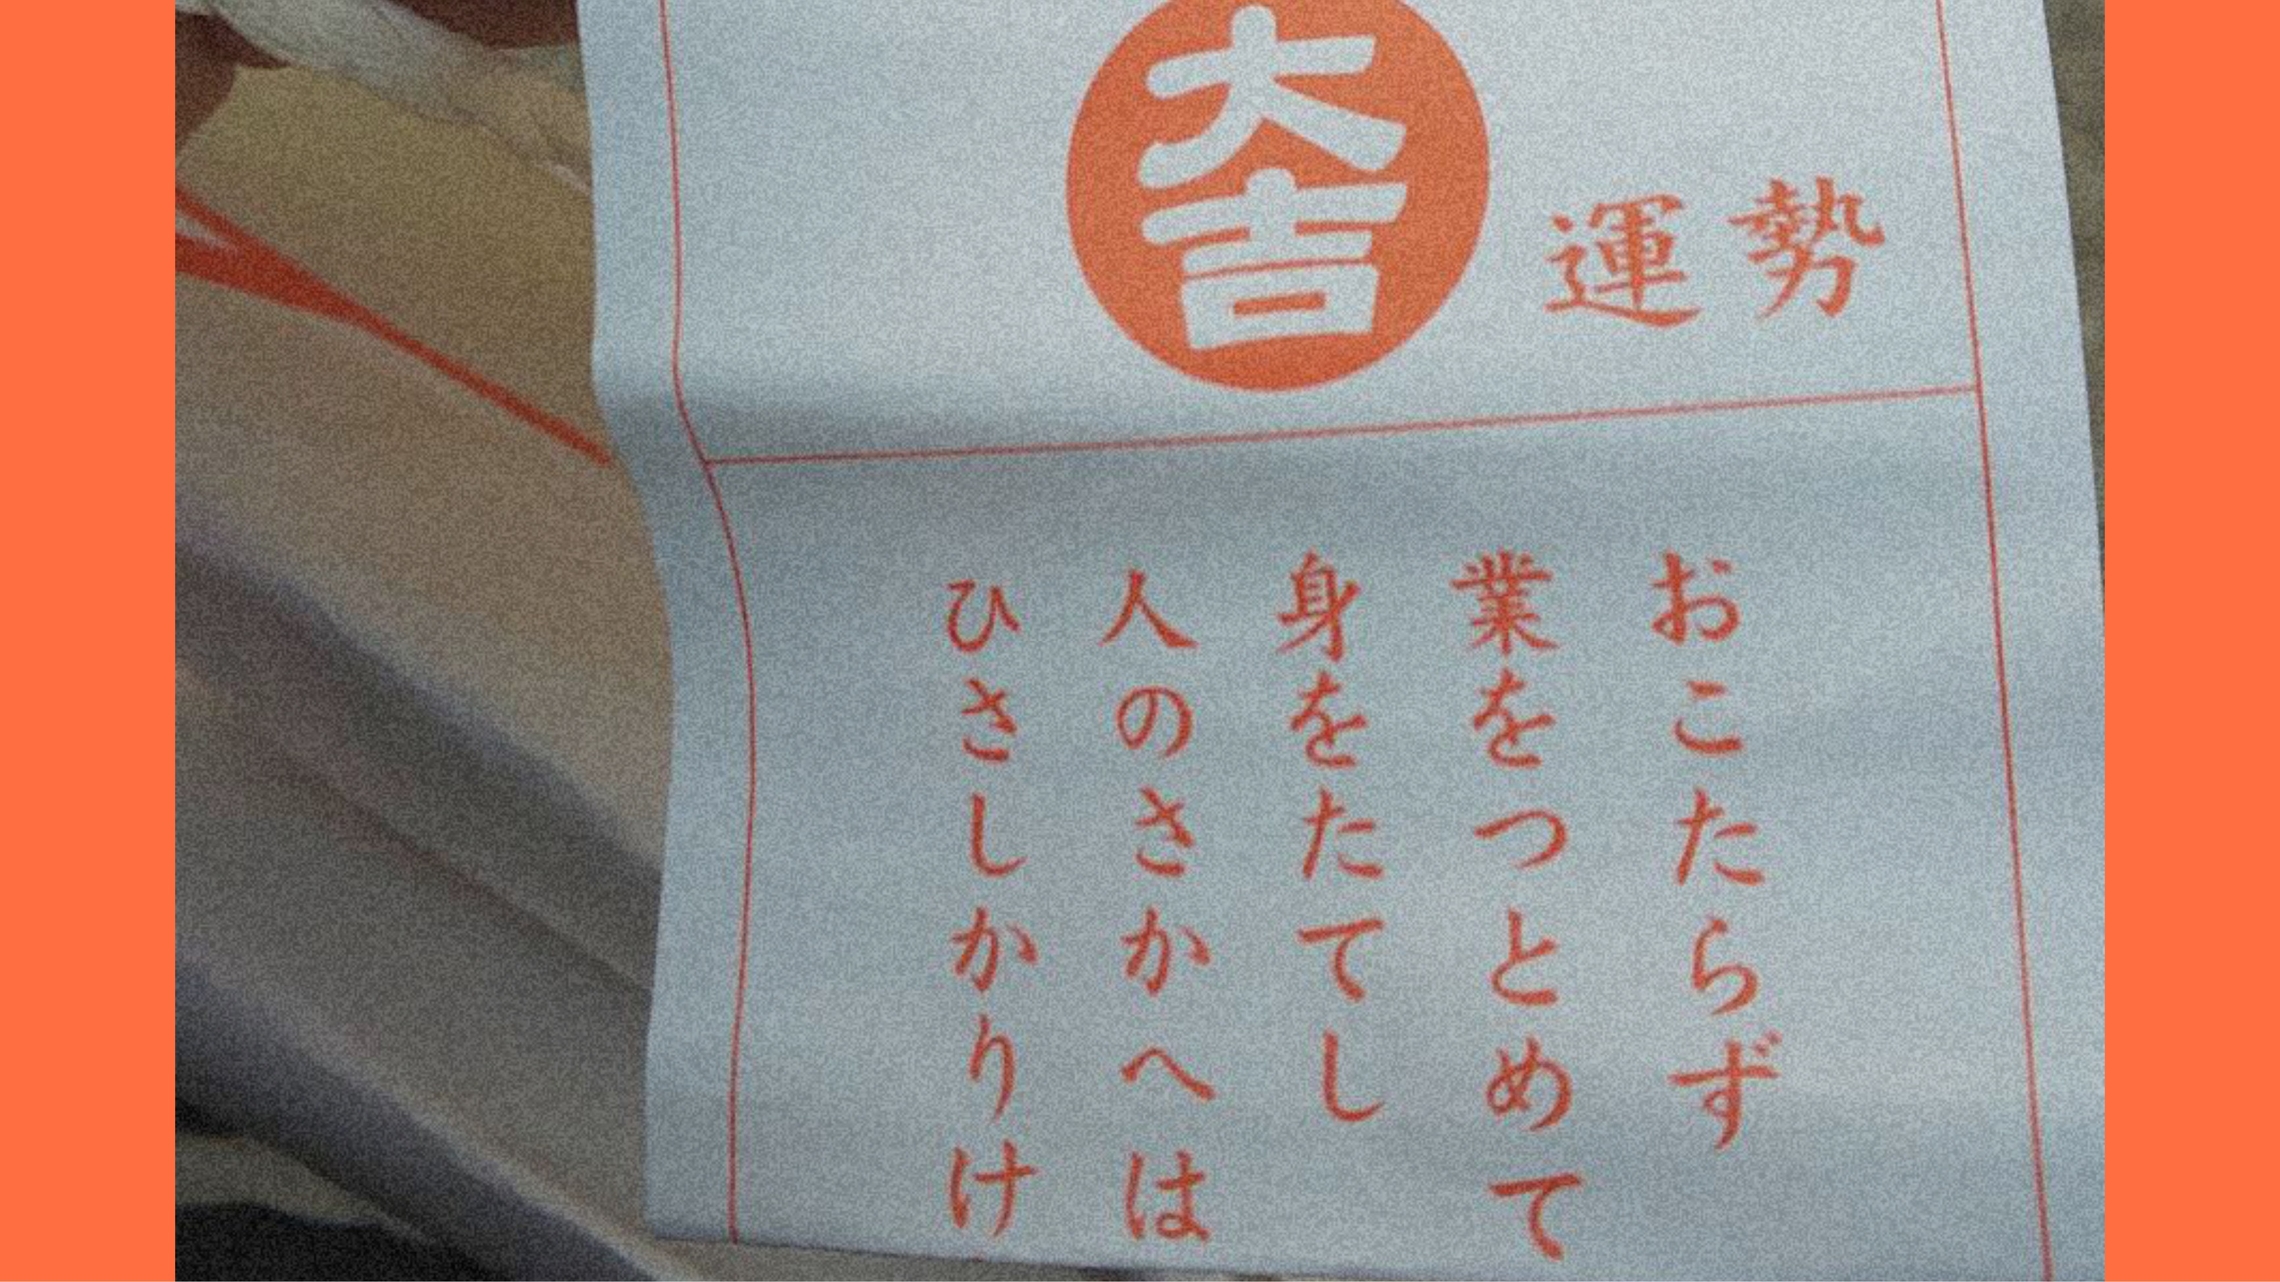 運勢
大吉
おこたらず
業をつとめて
身をたてし
人のさかへは
ひさしかりけ